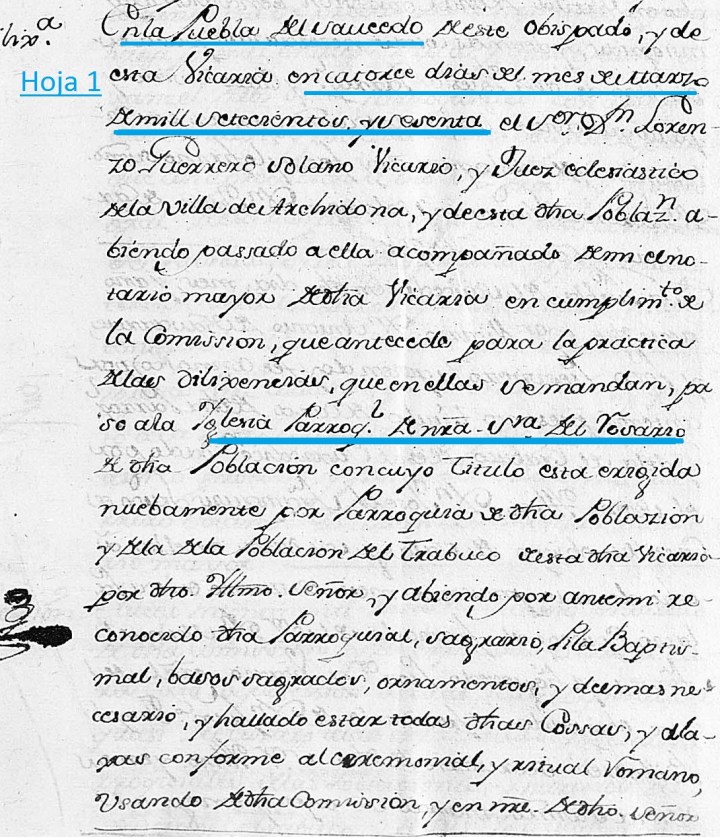 En la Puebla del Saucedo de este obispado, y de
esta Vicaria en catorce dias del mes de Marzo
de mill setecientos, y sesenta el Sor. Dn. Loren-
Hoja 1
zo Guerrero Solano Vicario, y Juez eclesiastico
de la Villa de Archidona, y de esta dha Poblazn. a-
biendo passado a ella acompañado de mi el no-
tario mayor de dha Vicaria en cumplimto. de
la Comission, que antecede para la practica
de las dilixencias, que en ellas se mandan, pa
so a la Yglesia Parroql. de nra. Sra. del Rosario
de dha Poblacion con cuyo Titulo esta erigida
nuebamente por Parroquia de dha Poblazion
y de la de la Poblacion del Trabuco de esta dha Vicaria
por dho. Illmo. Señor, y abiendo por ante mi re-
conocido dha Parroquial, sagrario, Pila Baptis-
mal, basos sagrados, ornamentos, y demas ne-
cesario, y hallado estar todas dhas Cossas, y
conforme al ceremonial, y ritual Romano,
Usando de dha Comission, y en nre. de dho. Señor